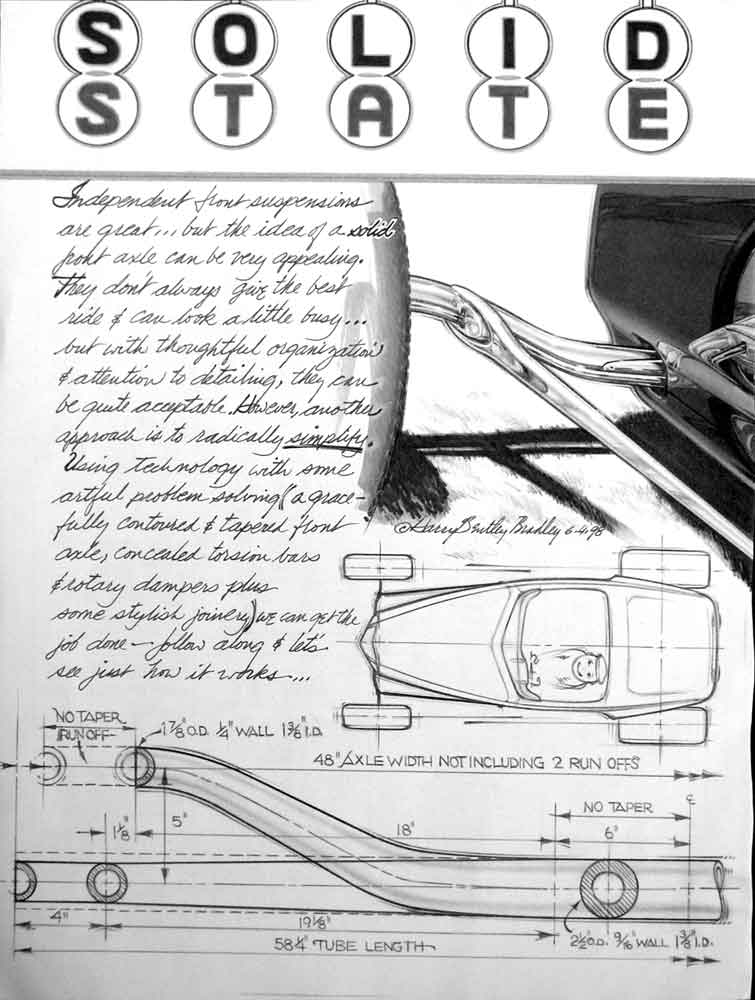 SOLID
STATE
Independent front suspensions
are great... but the idea of a solid
front axle can be very appealing.
They don't always give the best
ride & can look a little busy...
but with thoughtful organization
& attention to detailing, they can
be quite acceptable. However, another
approach is to radically simplify.
Using technology with some
artful problem solving (a grace-
fully contoured & tapered front
axle, concealed torsion bars
& rotary dampers plus
some stylish joinery) we can get the
job done – follow along & let's
see just how it works...
© Harry Bentley Bradley 6.4.98
NO TAPER
RUN OFF
1 7/8" O.D. 1/4" WALL 1 3/8" I.D.
48" AXLE WIDTH NOT INCLUDING 2 RUN OFFS
NO TAPER
1 1/8
5"
18"
6"
4"
19 1/8"
58 1/4" TUBE LENGTH
2 1/2" O.D. 9/16" WALL 1 3/8" I.D.